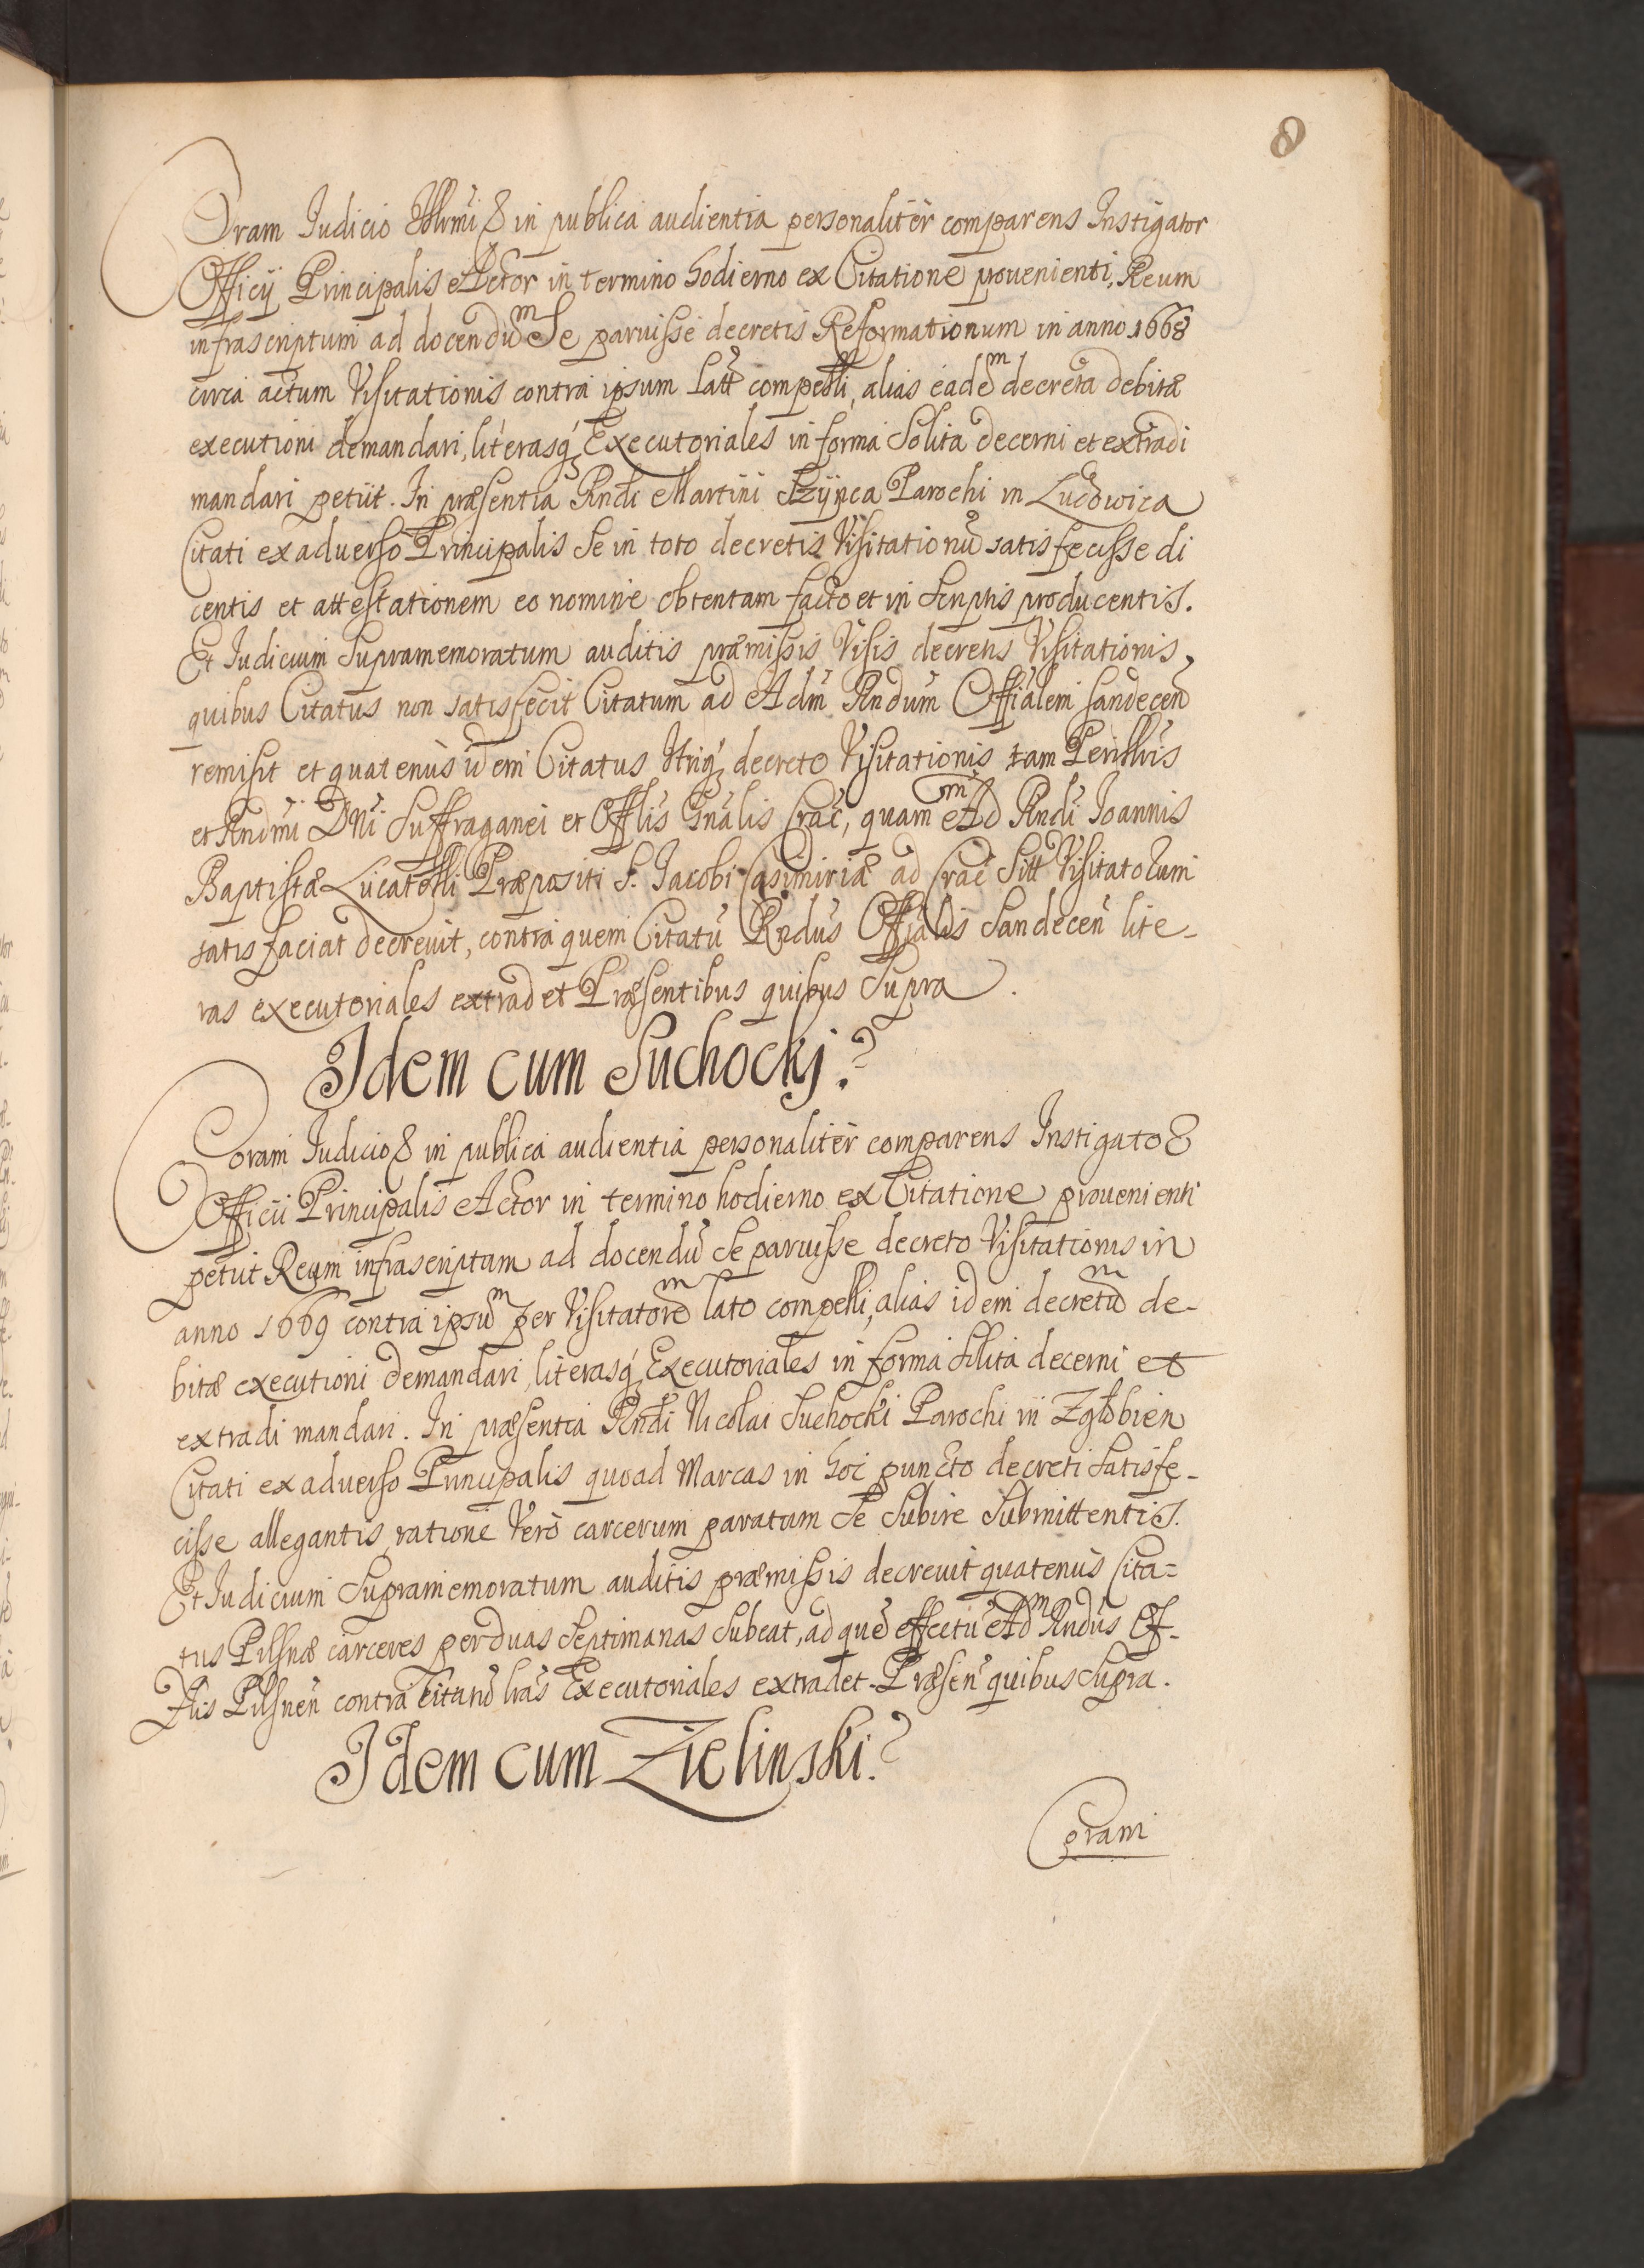 8
Coram Judicio Illrmi & in publica audientia personaliter comparens Instigator
Officij Principalis Actor in termino hodierno ex Citatione prouenienti, Reum
infrascriptum ad docendũm Se paruisse decretis Reformationum in anno 1668
circa actum Visitationis contra ipsum Latt compelli, alias eadem decreta debitæ
executioni demandari, literasq́ Executoriales in forma Solita decerni et extradi
mandari petijt. In præsentia Rndi Martini Parochi in Ludowica
Citati ex aduerso Principalis Se in toto decretis Visitationũ satisfecisse di
centis et attestationem eo nomine obtentam facto et in Scriptis producentis.
Et Judicium Supramemoratum auditis præmissis Visis decretis Visitationis,
quibus Citatus non satisfecit Citatum ad Adm Rndum Offialem Sandecen
remisit et quatenus idem Citatus Utriq́ decreto Visitationis tam Perillris
et Rndmi Dni Suffraganei et Offlis Gnalis Crac, quam Adm Rndi Joannis
Baptistæ Lucatelli Præpositi S. Jacobi Casimiriæ ad Crac Sitt Visitatorum
satisfaciat decreuit, contra quem Citatũ Rndus Offialis Sandecen lite-
ras executoriales extradet Præsentibus quibus Supra.
Idem cum Suchockj?
Coram Judicio & in publica audientia personaliter comparens Instigator
Officii Principalis Actor in termino hodierno ex Citatione prouenienti
petijt Reum infrascriptum ad docendũ Se paruisse decreto Visitationis in
anno 1669 contra ipsum per Visitatorem lato compelli, alias idem decretum de-
bitæ executioni demandari, literasq́ Executoriales in forma Solita decerni et
extradi mandari. In præsentia Rndi Nicolai Suchocki Parochi in Zgłobien
Citati ex aduerso Principalis quoad Marcas in hoc puncto decreti Satisfe-
cisse allegantis, ratione Vero carcerum paratum Se Subire Submittentis.
Et Judicium Supramemoratum auditis præmissis decreuit quatenus Cita=
tus Pilsnæ carceres per duas Septimanas Subeat, ad quẽ effectũ Adm Rndus Of-
flis Pilsnen contra Citatũ lras Executoriales extradet. Præsen quibus Supra.
Idem cum Zielinski?
Coram